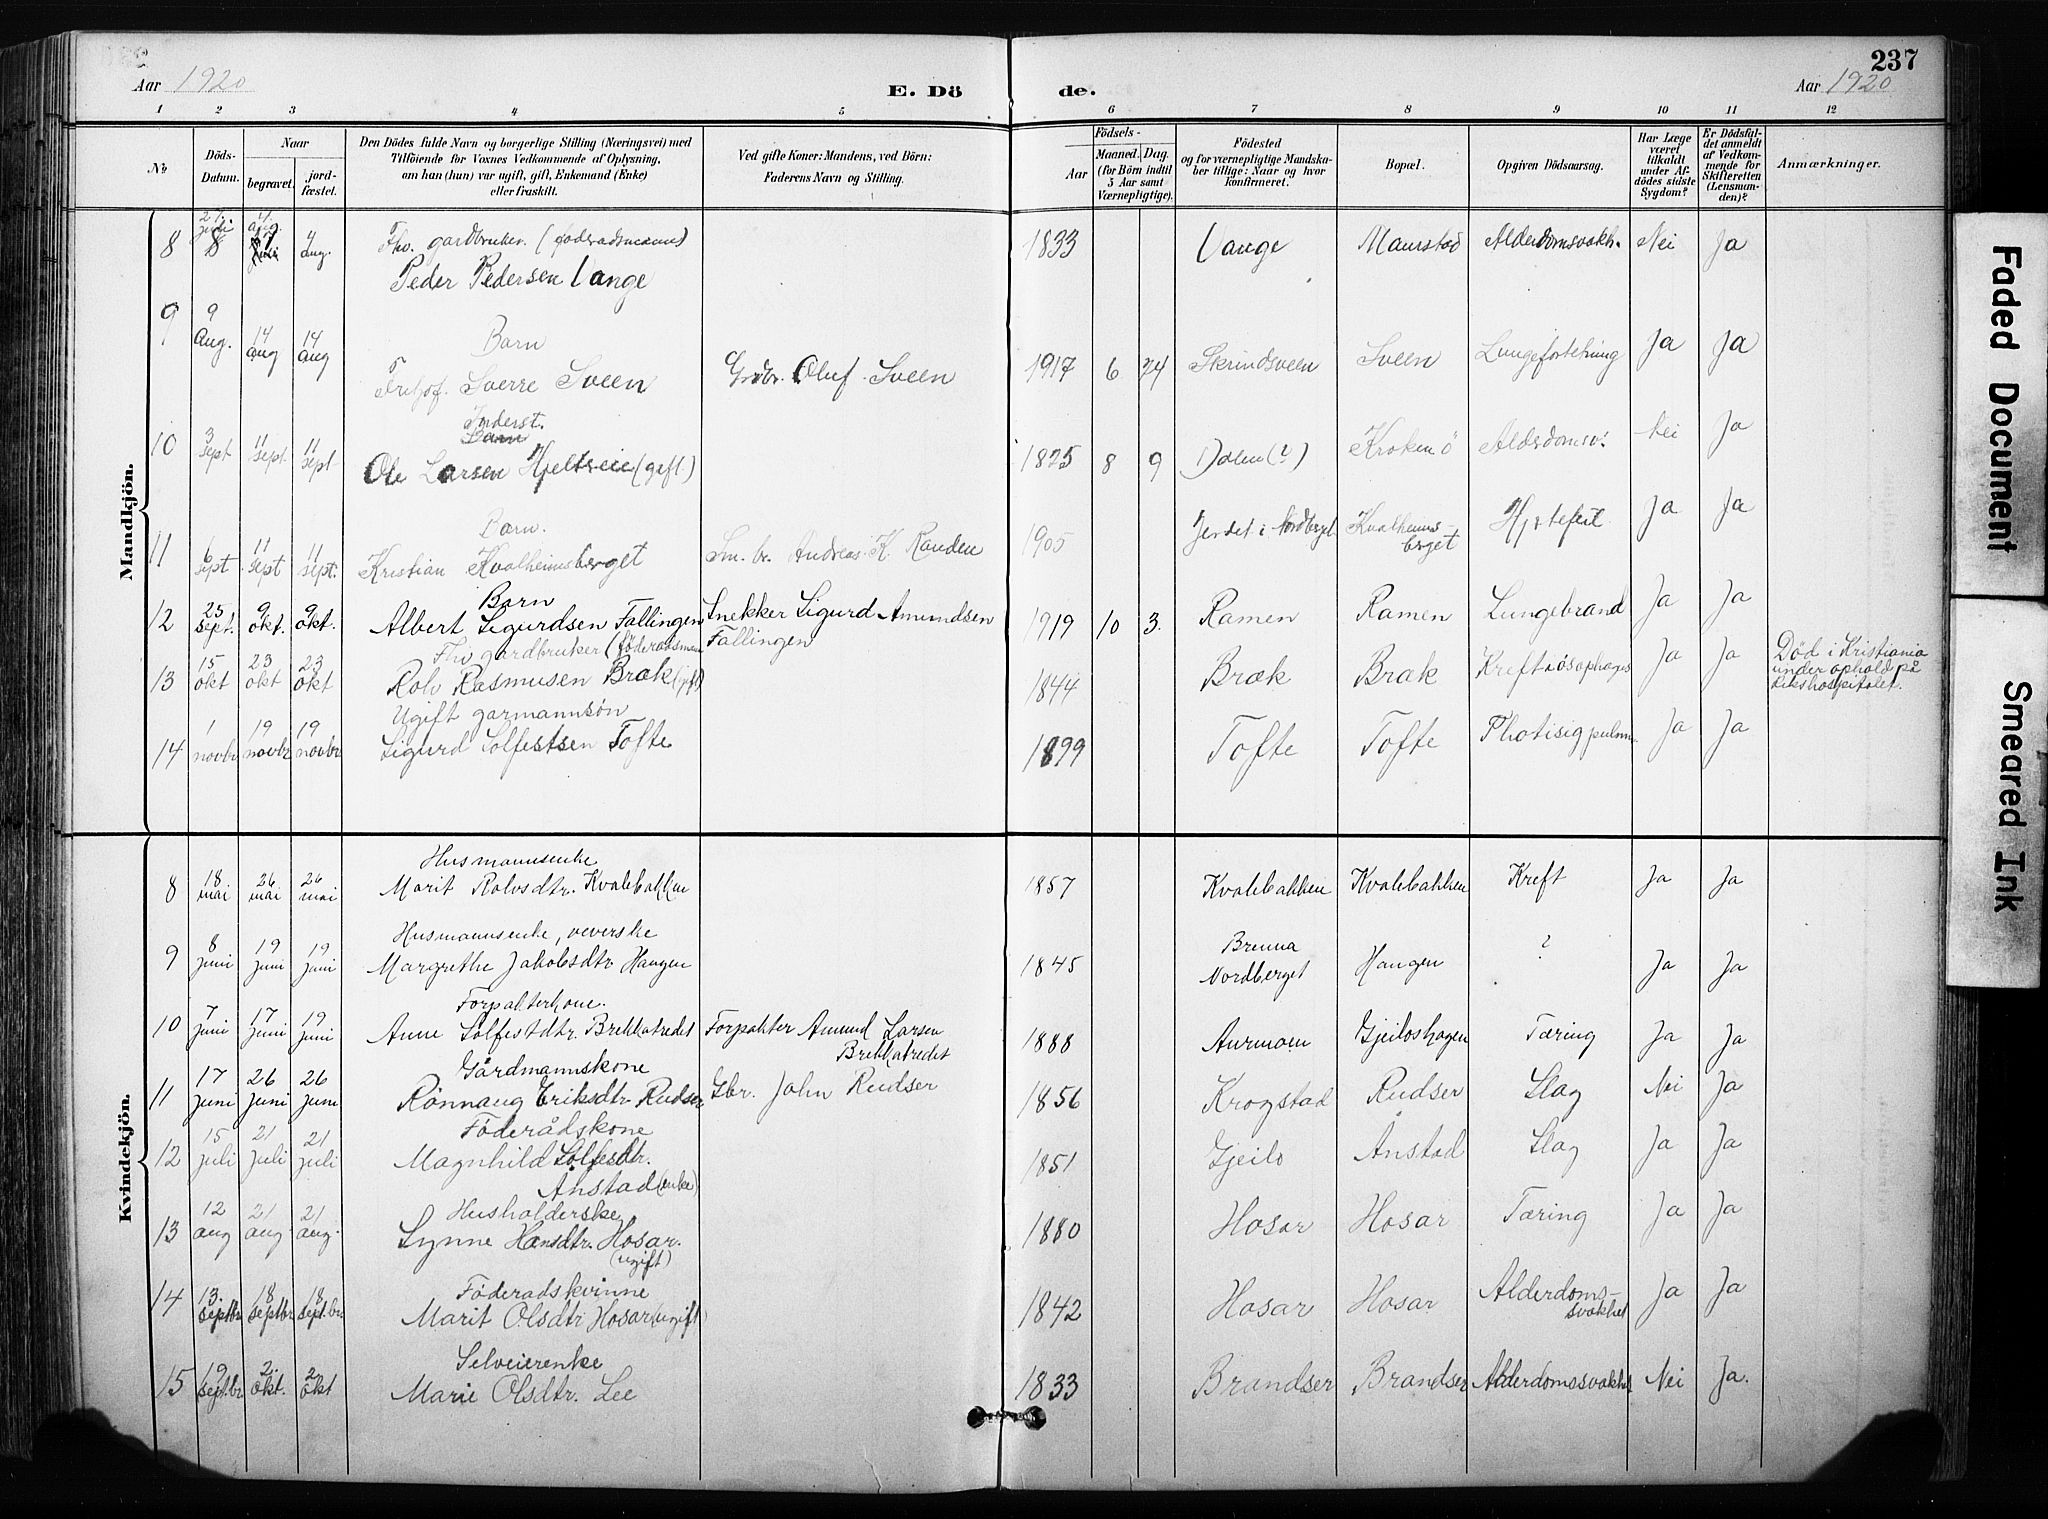 237
Aar 1920
E. Dö de.
Aar 1920
1 2 3 4 5 6 7 8 9 10 11 12
№
Döds-Datum.
Naar
begravet.
jord-fæstet.
Den Dödes fulde Navn og borgerlige Stilling (Næringsvei) med
Tilföiende for Voxnes Vedkommende af Oplysning,
om han (hun) var ugift, gift, Enkemand (Enke)
eller fraskilt.
Ved gifte Koner: Mandens, ved Börn:
Faderens Navn og Stilling.
Födsels-
Aar
Maaned.
Dag.
(for Börn indtil
5 Aar samt
Værnepligtige).
Födested
og for værnepligtige Mandska-
ber tillige: Naar og hvor
konfirmeret.
Bopæl.
Opgiven Dödsaarsag.
Har Læge
været
tilkaldt
under Af-
dödes sidste
Sygdom?
Er Dödsfal-
det anmeldt
af Vedkom-
mende for
Skifteretten
(Lensman-
den)?
Anmærkninger.
Mandkjön.
8 27 juli 4 aug. 4 aug. Fhv. gardbruker (foderadsmann)
Peder Pedersen Vange 1833 Vange Maurstad Alderdomsvakh. Nei Ja
9 9 Aug. 14 aug 14 aug Barn
Frithjof Sverre Sveen Grdbr. Oluf Sveen 1917 6 24 Skrindsveen Sveen Lungefortetning Ja Ja
10 3 sept 11 sept. 11 sept. Inderst.
Ole Larsen Hjeltveie (gift) 1825 8 9 Dalen (?) Kroken ö Alderdomsv. Nei Ja
11 6 sept 11 sept 11 sept. Barn.
Kristian Kvalheimsberget Sm. br. Andreas K. Randen 1905 Jerdet i Nordberget Kvalheims-
berget Hjertefeil Ja Ja
12 25 sept. 9 okt. 9 okt. Barn
Albert Sigurdsen Fallingen Snekker Sigurd Amundsen
Fallingen 1919 10 3. Ramen Ramen Lungebrand Ja Ja
13 15 okt 23 okt 23 okt Fhv gardbruker (föderadsmann
Rolv Rasmusen Bræk (gift) 1844 Bræk Bræk Kreft i ösophages Ja Ja Död i Kristiania
under ophold på
Rikshospitalet.
14 1 novbr 19 novbr 19 novbr Ugift garmannsön
Sigurd Solfestsen Tofte 1899 Tofte Tofte Phtisis pulm. Ja Ja
Kvindekjön.
8 18 mai 26 mai 26 mai Husmannsenke
Marit Rolvsdtr. Kvalebakken 1857 Kvalebakken Kvalebakken Kreft Ja Ja
9 8 juni 19 juni 19 juni Husmannsenke, veverske
Margrethe Jakobsdtr Haugen 1845 Brenna
Nordberget Haugen ? Ja Ja
10 7 juni 17 juni 19 juni Forpakterkone.
Anne Solfestdtr. Brekkatredet Forpakter Amund Larsen
Brekkatredet 1888 Aurmoen Gjeiloshagen Tæring Ja Ja
11 17 juni 26 juni 26 juni Gårdmannskone
Rönnaug Eriksdtr Rudser Gbr. John Rudser 1856 Krogstad Rudser Slag Nei Ja
12 15 juli 21 juli 21 juli Föderådskone
Magnhild Solfesdtr.
Anstad (enke) 1851 Gjeilo Anstad Slag Ja Ja
13 12 aug 21 aug 21 aug. Husholderske
Synne Hansdtr. Hosar.
(ugift) 1880 Hosar Hosar Tæring Ja Ja
14 13. septbr 18 septbr 18 septbr Föderadskvinne
Marit Olsdtr Hosar (ugift) 1842 Hosar Hosar Alderdoms-
svakhet Ja Ja
15 19 septbr 2. okt. 2 okt Selveierenke
Marie Olsdtr. Lee 1833 Brandser Brandser Alderdomssvakhet Nei Ja.
Faded Document
Smeared Ink